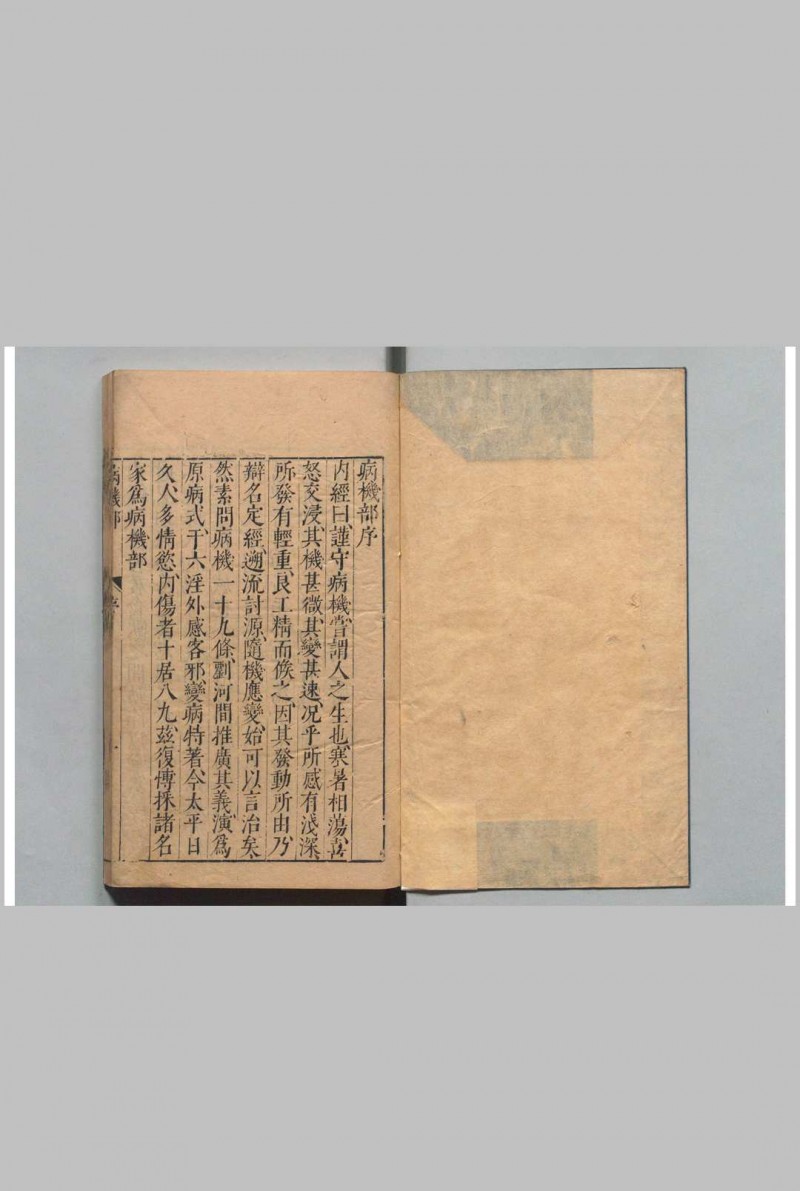 病機部序
内經曰、謹守病機、嘗謂人之生也、寒暑相蕩、喜
怒交浸、其機甚微、其變甚速、况乎所感有淺深、
所發有輕重、良工精而候之、因其發動所由、乃
辯名定經、遡流討源、隨機應變、始可以言治矣、
然素問病機一十九條、劉河間推廣其義、演爲
原病式、于六淫外感客邪、變病特著、今太平日
久、人多情慾、内傷者十居八九、茲復博採諸名
家爲病機部
病機部 序